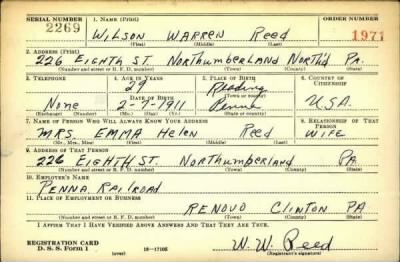 SERIAL NUMBER 1. NAME (Print) ORDER NUMBER
2269 WILSON WARREN Reed 1971
(First) (Middle) (Last)
2. ADDRESS (Print)
226 EIGHTH ST. NORTHUMBERLAND NORTH'D PA.
(Number and street or R. F. D. number) (Town) (County) (State)
3. TELEPHONE 4. AGE IN YEARS 5. PLACE OF BIRTH 6. COUNTRY OF CITIZENSHIP
29 Reading
DATE OF BIRTH (Town or county)
None 2-7-1911 Penna USA.
(Exchange) (Number) (Mo.) (Day) (Yr.) (State or country)
7. NAME OF PERSON WHO WILL ALWAYS KNOW YOUR ADDRESS 8. RELATIONSHIP OF THAT PERSON
MRS. EMMA Helen Reed WIFE
(Mr., Mrs., Miss) (First) (Middle) (Last)
9. ADDRESS OF THAT PERSON
226 EIGHTH ST. Northumberland PA
(Number and street or R. F. D. number) (Town) (County) (State)
10. EMPLOYER'S NAME
PENNA. RAILROAD
11. PLACE OF EMPLOYMENT OR BUSINESS
RENOVO CLINTON PA
(Number and street or R. F. D. number) (Town) (County) (State)
I AFFIRM THAT I HAVE VERIFIED ABOVE ANSWERS AND THAT THEY ARE TRUE.
REGISTRATION CARD W. W. Reed
D. S. S. Form 1 (over) 16-17105 (Registrant's signature)